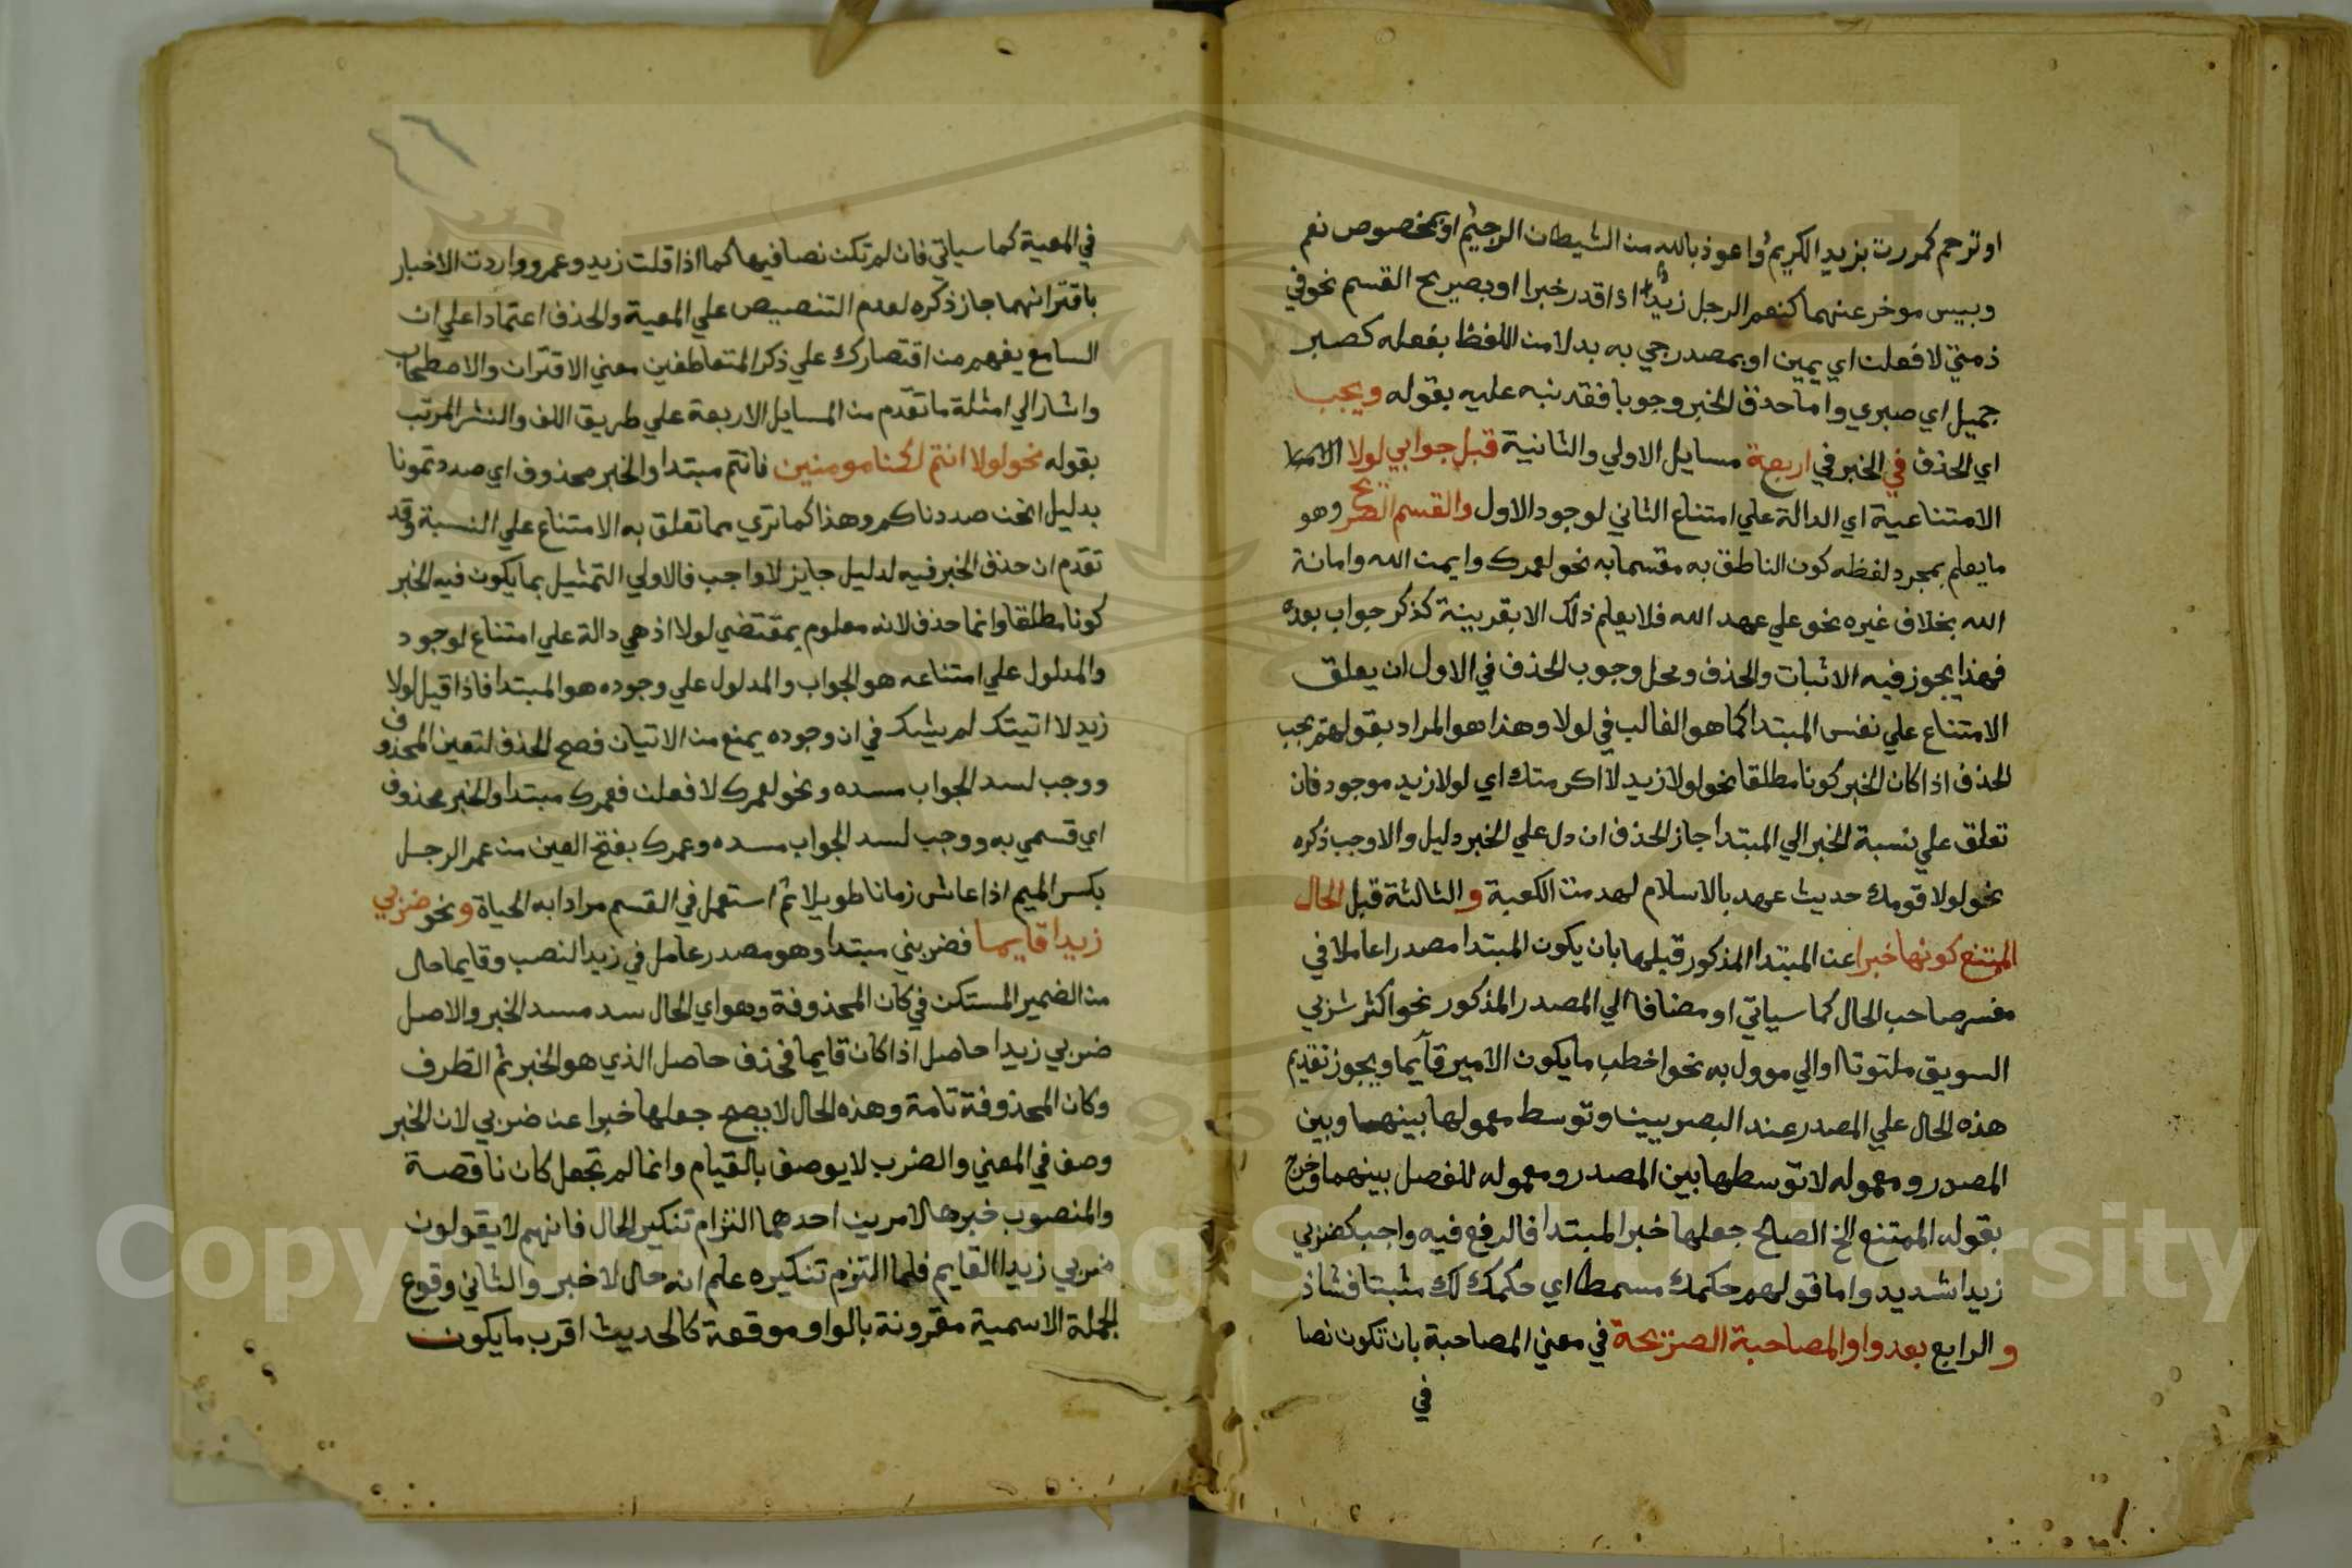 او ترحم كمررت بزيد الكريمُ واعوذ بالله من الشيطان الرجيمُ او بمخصوص نعم
وبيس موخر عنهما كنعم الرجل زيد اذا قدر خبرا او بصريح القسم نحو في
ذمتي لا فعلت اي يمين او بمصدر جي به بدلا من اللفظ بفعله كصبر
جميل اي صبري واما حذف الخبر وجوبا فقد نبه عليه بقوله ويجب
اي الحذف في الخبر في اربعة مسايل الاولي والثانية قبل جوابي لولا
الامتناعية اي الدالة علي امتناع الثاني لوجود الاول والقسم الصريح وهو
ما يعلم بمجرد لفظه كون الناطق به مقسما به نحو لعمرك وايمن الله وامانة
الله بخلاف غيره نحو علي عهد الله فلا يعلم ذلك الا بقرينة كذكر جواب بعده
فهذا يجوز فيه الاثبات والحذف ومحل وجوب الحذف في الاول ان يعلق
الامتناع علي نفس المبتدا كما هو الغالب في لولا وهذا هو المراد بقولهم يجب
الحذف اذا كان الخبر كونا مطلقا نحو لولا زيد لاكرمتك اي لولا زيد موجود فان
تعلق علي نسبة الخبر الي المبتدا جاز الحذف ان دل علي الخبر دليل والا وجب ذكره
نحو لولا قومك حديث عهد بالاسلام لهدمت الكعبة والثالثة قبل الحال
الممتنع كونها خبرا عن المبتدا المذكور قبلها بان يكون المبتدا مصدرا عاملا في
مفسر صاحب الحال كما سياتي او مضافا الي المصدر المذكور نحو اكثر شربي
السويق ملتوتا او الي موول به نحو اخطب ما يكون الامير قايما ويجوز تقديم
هذه الحال علي المصدر عند البصريين وتوسط معمولها بينهما وبين
المصدر ومعموله لا توسطها بين المصدر ومعموله للفصل بينهما وخرج
بقوله الممتنع الخ الصالح جعلها خبر المبتدا فالرفع فيه واجب كضربي
زيدا شديد واما قولهم حكمك مسمطا اي حكمك لك مثبتا فشاذ
و الرابع بعد واو المصاحبة الصريحة في معني المصاحبة بان تكون نصا
في
في المعية كما سياتي فان لم تكن نصا فيها كما اذا قلت زيد وعمرو واردت الاخبار
باقترانهما جاز ذكره لعدم التنصيص علي المعية والحذف اعتمادا علي ان
السامع يفهم من اقتصارك علي ذكر المتعاطفين معني الاقتران والاصطحاب
واشار الي امثلة ما تقدم من المسايل الاربعة علي طريق اللف والنشر المرتب
بقوله نحو لولا انتم لكنا مومنين فانتم مبتدا والخبر محذوف اي صددتمونا
بدليل انحن صددناكم وهذا كما تري مما تعلق به الامتناع علي النسبة وقد
تقدم ان حذف الخبر فيه لدليل جايز لا واجب فالاولي التمثيل بما يكون فيه الخبر
كونا مطلقا وانما حذف لانه معلوم بمقتضي لولا اذ هي دالة علي امتناع لوجود
والمدلول علي امتناعه هو الجواب والمدلول علي وجوده هو المبتدا فاذا قيل لولا
زيد لا اتيتك لم يشك في ان وجوده يمنع من الاتيان فصح الحذف لتعين المحذوف
ووجب لسد الجواب مسده ونحو لعمرك لا فعلت فعمرك مبتدا والخبر محذوف
اي قسمي به ووجب لسد الجواب مسده وعمرك بفتح العين من عمر الرجل
بكسر الميم اذا عاش زمانا طويلا ثم استعمل في القسم مرادا به الحياة ونحو ضربي
زيدا قايما فضربي مبتدا وهو مصدر عامل في زيد النصب وقايما حال
من الضمير المستكن في كان المحذوفة وهو اي الحال سد مسد الخبر والاصل
ضربي زيدا حاصل اذا كان قايما فحذف حاصل الذي هو الخبر ثم الظرف
وكان المحذوفة تامة وهذه الحال لا يصح جعلها خبرا عن ضربي لان الخبر
وصف في المعني والضرب لا يوصف بالقيام وانما لم تجعل كان ناقصة
والمنصوب خبرها لامرين احدهما التزام تنكير الحال فانهم لا يقولون
ضربي زيدا القايم فلما التزم تنكيره علم انه حال لا خبر والثاني وقوع
الجملة الاسمية مقرونة بالواو موقعة كالحديث اقرب ما يكون
Copyright © King Saud University
1957